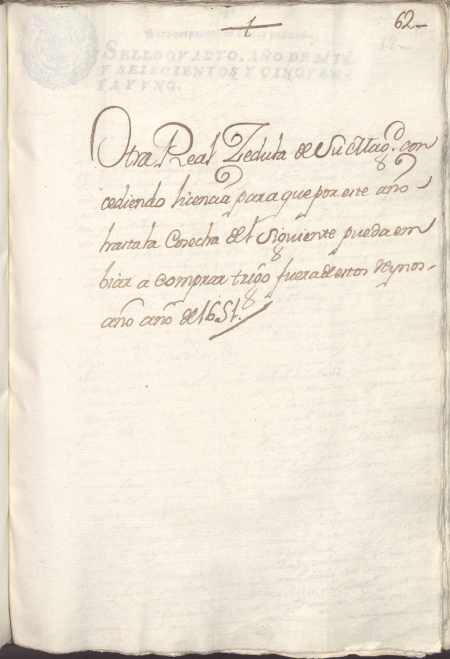 62
SELLO QVARTO, AÑO DE MIL
Y SEISCIENTOS Y CINQVEN-
TA Y VNO.
Otra Real Zedula de Su Magd. con
cediendo licencia para que por este año
hasta la Cosecha del Siguiente pueda em
biar a comprar trigo fuera de estos Reynos-
año año de 1651.